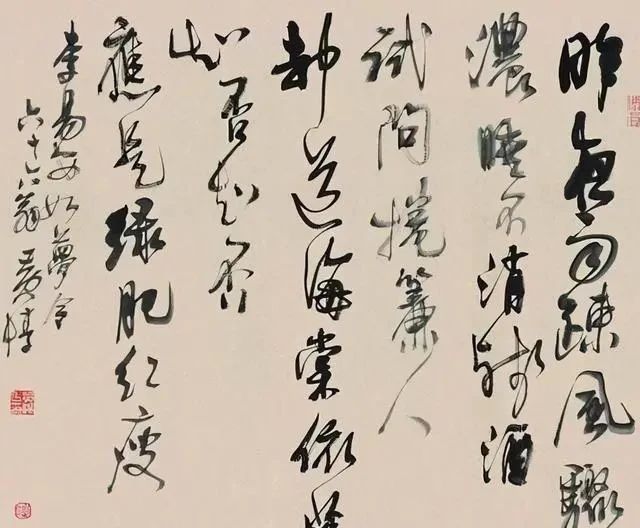 昨夜雨疎風驟
濃睡不消殘酒
試問捲簾人
却道海棠依舊
知否知否
應是綠肥紅瘦
李易安如夢令
六十六翁黃惇